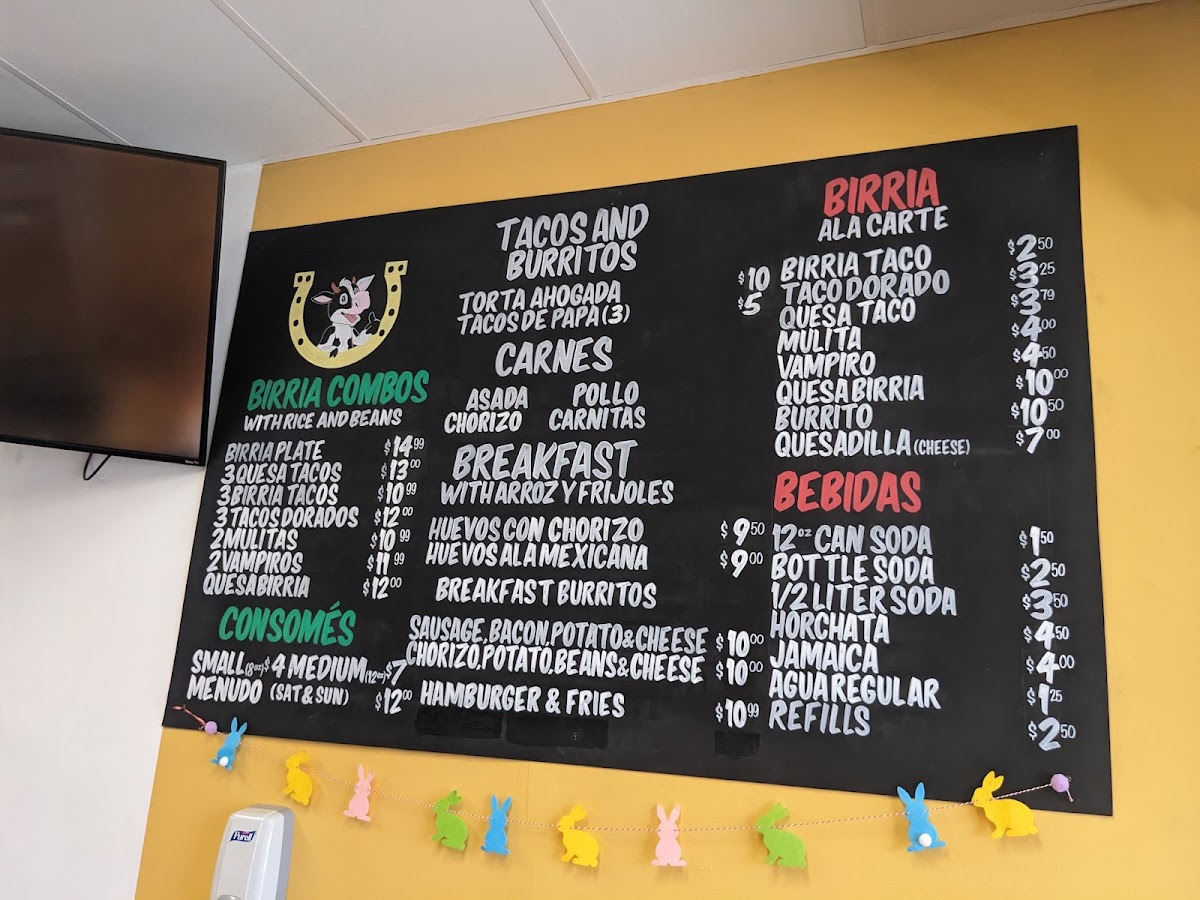 BIRRIA COMBOS
WITH RICE AND BEANS
BIRRIA PLATE $14.99
3 QUESA TACOS $13.00
3 BIRRIA TACOS $10.99
3 TACOS DORADOS $12.00
2 MULITAS $10.99
2 VAMPIROS $11.99
QUESABIRRIA $12.00
CONSOMÉS
SMALL (8oz) $4 MEDIUM (12oz) $7
MENUDO (SAT & SUN) $12.00
TACOS AND
BURRITOS
TORTA AHOGADA $10
TACOS DE PAPA (3) $5
CARNES
ASADA POLLO
CHORIZO CARNITAS
BREAKFAST
WITH ARROZ Y FRIJOLES
HUEVOS CON CHORIZO $9.50
HUEVOS ALA MEXICANA $9.00
BREAKFAST BURRITOS
SAUSAGE, BACON, POTATO & CHEESE $10.00
CHORIZO, POTATO, BEANS & CHEESE $10.00
HAMBURGER & FRIES $10.99
BIRRIA
ALA CARTE
BIRRIA TACO $2.50
TACO DORADO $3.25
QUESA TACO $3.79
MULITA $4.00
VAMPIRO $4.50
QUESABIRRIA $10.00
BURRITO $10.50
QUESADILLA (CHEESE) $7.00
BEBIDAS
12oz CAN SODA $1.50
BOTTLE SODA $2.50
1/2 LITER SODA $3.50
HORCHATA $4.50
JAMAICA $4.00
AGUA REGULAR $1.25
REFILLS $2.50
Purell